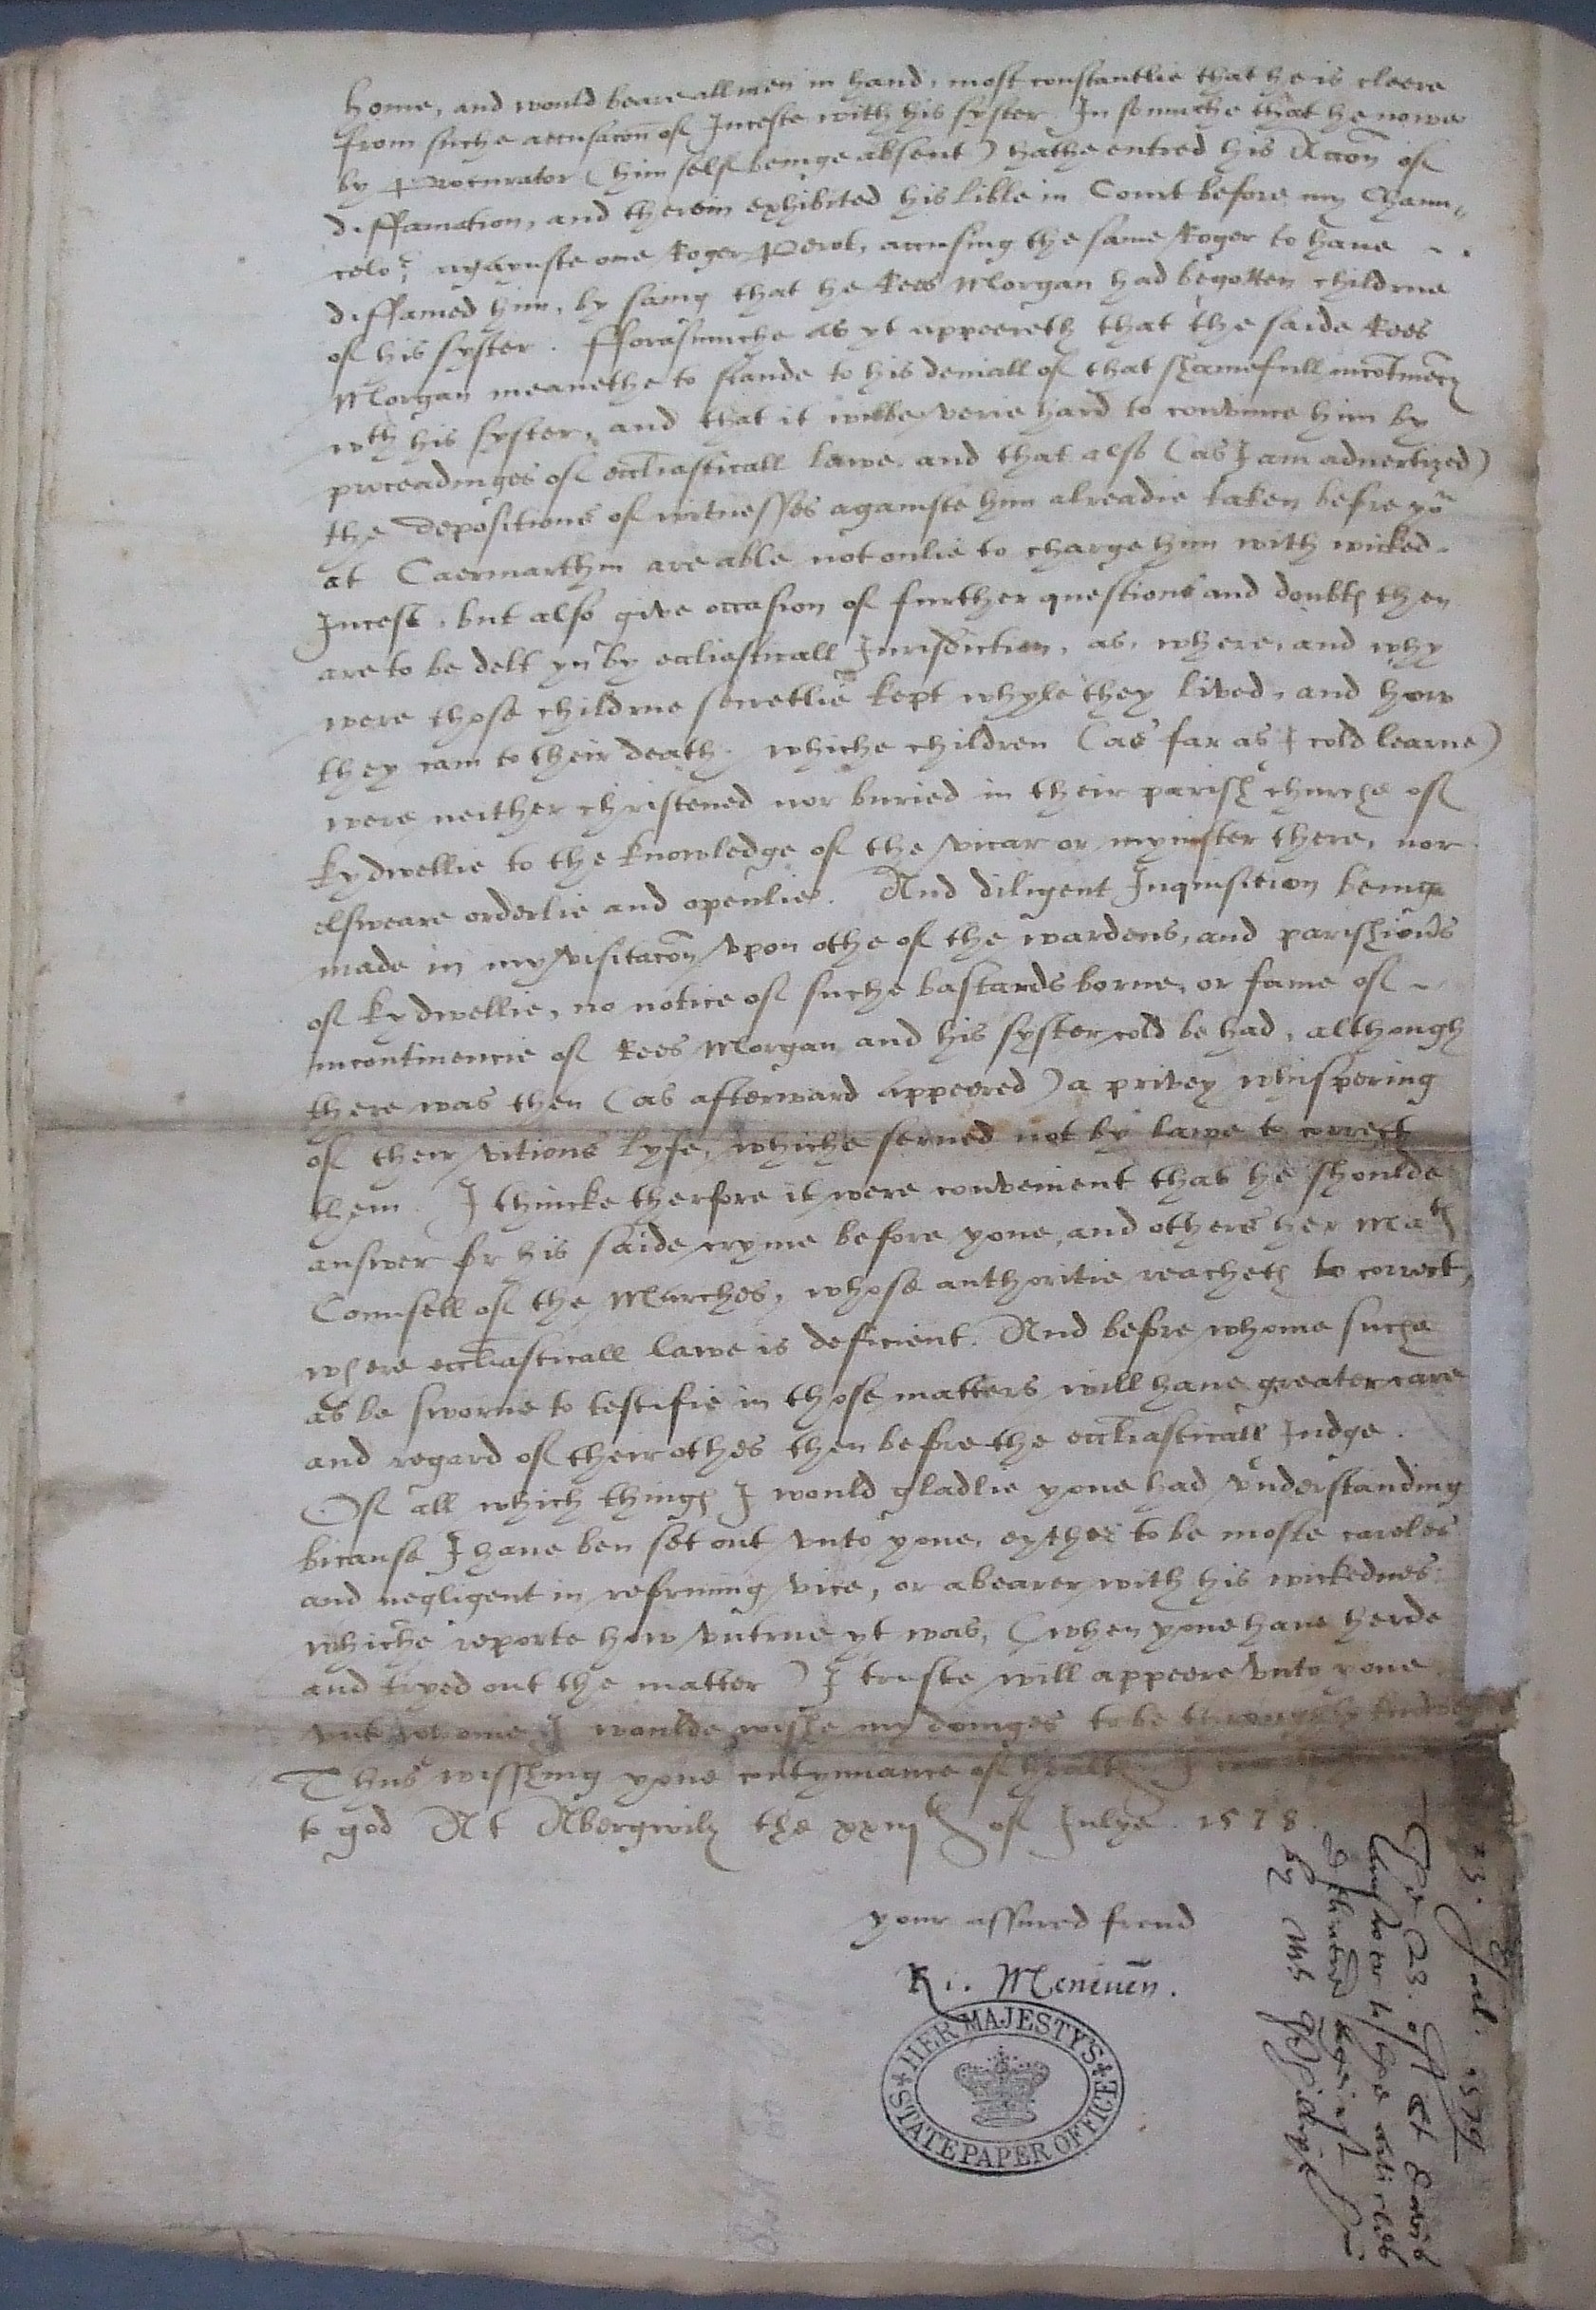 home, and would beare all men in hand, most constantlie that he is cleere
from suche accusacon of Inceste with his syster. In somuche that he nowe
by Procurator (him self beinge absent) hathe entred his Accon of
diffamation, and therein exhibited his lible in Court before my Chaun„
celor, agaynste one Roger Perot, accusing the same Roger to haue
diffamed him, by saing that he Rees Morgan had begotten childrne
of his syster. fforasmuche as yt appeereth that the saide Rees
Morgan meanethe to stande to his deniall of that shamefull incotinecy
wth his syster, and that it wilbe verie hard to convince him by
proceadinges of eccliasticall lawe. and that also (as I am aduertized)
the depositions of witnesses againste him alreadie taken befre yo
at Caermarthin are able not onlie to charge him with wicked
Incest, but also give occasion of further questions and doubts then
are to be delt yn by eccliasticall Jurisdiction, as, where, and why
were those childrne secretlie kept whyle they lived, and how
they cam to their death. whiche children (as far as I cold learne)
were neither christened nor buried in their parish churche of
kydwellie to the knowledge of the vicar or mynister there, nor
elsweare orderlie and openlie. And diligent Inquisicion beinge
made in my visitacon vpon othe of the wardens, and parishions
of kydwellie, no notice of suche bastards borne, or fame of
incontinencie of Rees Morgan and his syster cold be had, although
there was then (as afterward appeered) a privey whispering
of their vitious lyfe, whiche serued not by lawe to correct
them. I thincke therfore it were convenient that he shoulde
answer for his saide cryme before youe, and others her Mats
Counsell of the Marches, whose authoritie reacheth to correct,
where eccliasticall lawe is deficient. And before whome suche
as be sworne to testifie in those matters will haue greater care
and regard of their othes then before the eccliasticall Judge.
Of all which things I would gladlie youe had vnderstanding
bicause I haue ben set out vnto youe, eyther to be moste careles
and negligent in refrming vice, or a bearer with his wickednes:
whiche reporte how vntrue yt was, (when youe haue herde
and tryed out the matter) I truste will appeere vnto youe
vnto whome I woulde wishe my doinges to be throughly
Thus wisshing youe contynuance of health I
to god At Abergwily the xxiijth of Julye. 1578.
your assured frend
Ri. Meneuen.
HER MAJESTY'S STATE PAPER OFFICE
23. Jul. 1578
The 23. of